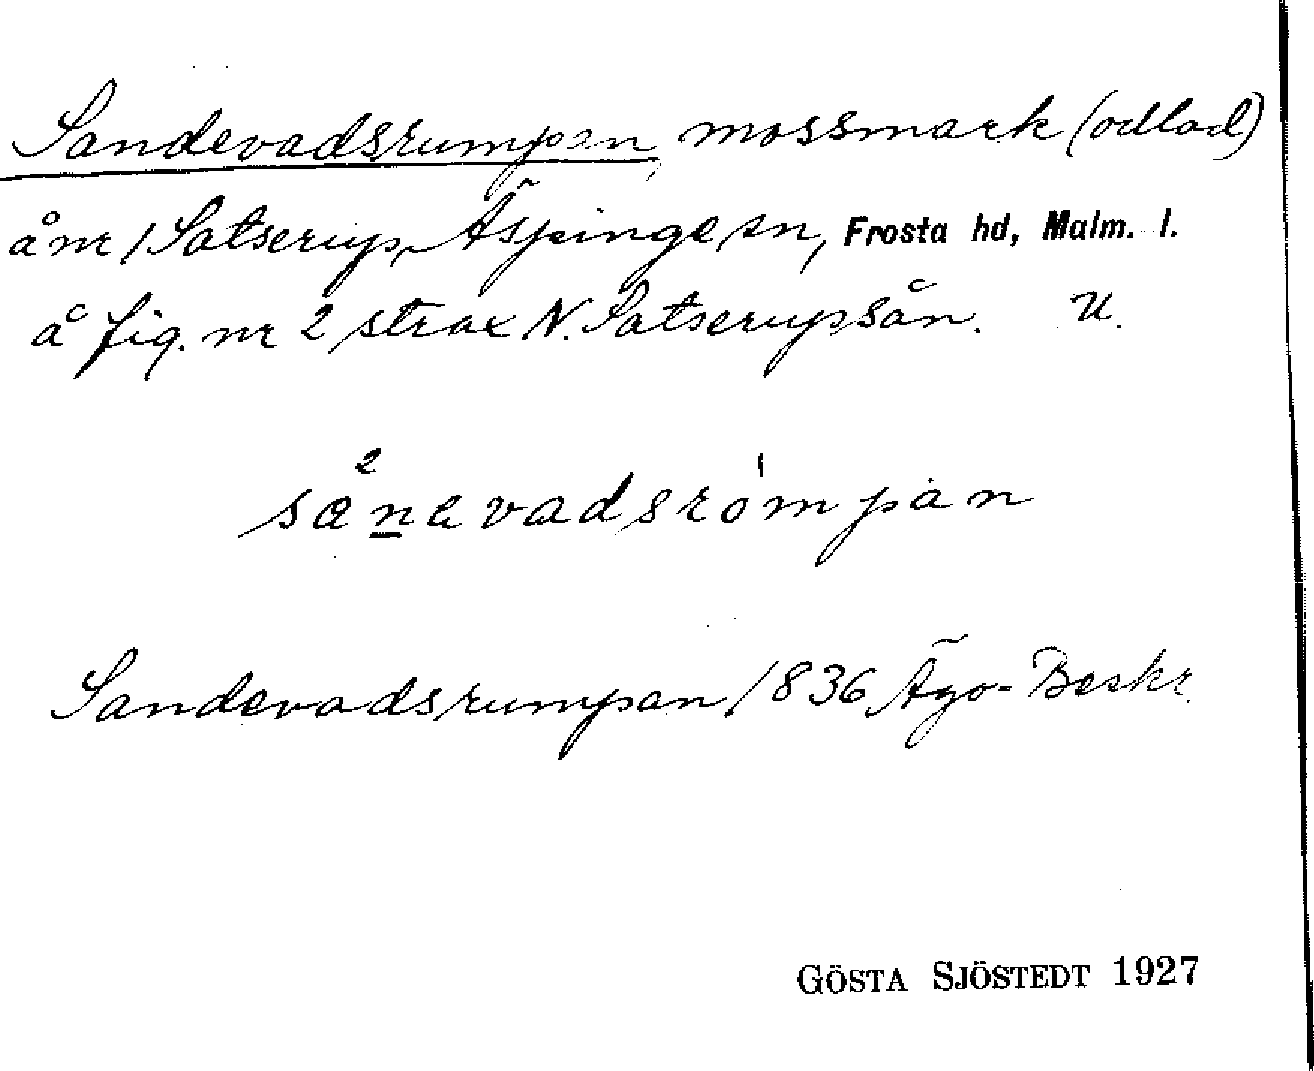 Sandevadsrumpan, mossmark (odlad)
å nr 1 Satserup, Äspinge sn, Frosta hd, Malm. l.
å fig. nr 2 strax N. Satserupsån. U.
Sandevadsrumpan 1836 Ägo-Beskr.
GÖSTA SJÖSTEDT 1927